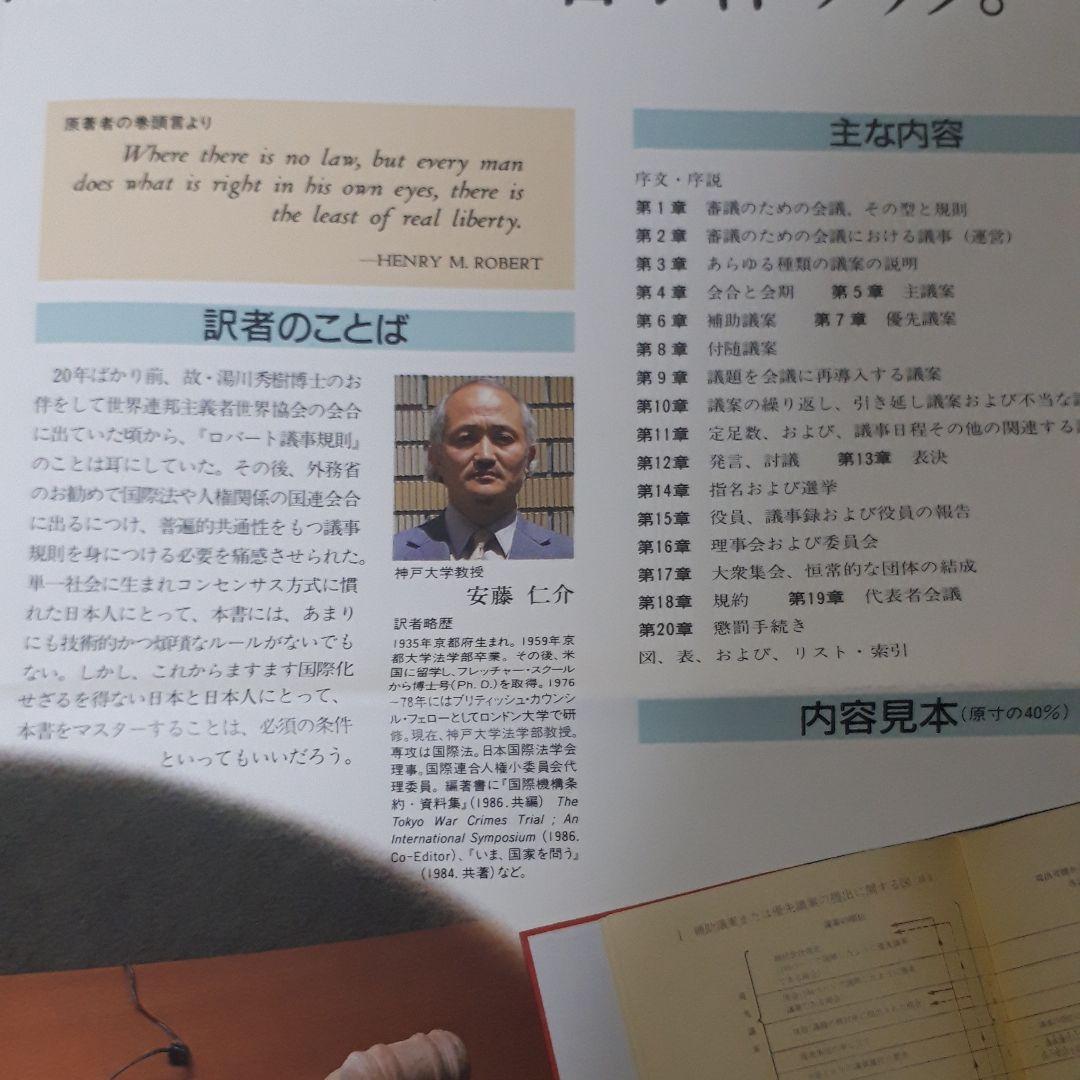 原著者の巻頭言より
Where there is no law, but every man
does what is right in his own eyes, there is
the least of real liberty.
—HENRY M. ROBERT
訳者のことば
20年ばかり前、故・湯川秀樹博士のお
伴をして世界連邦主義者世界協会の会合
に出ていた頃から、『ロバート議事規則』
のことは耳にしていた。その後、外務省
のお勧めで国際法や人権関係の国連会合
に出るにつけ、普遍的共通性をもつ議事
規則を身につける必要を痛感させられた。
単一社会に生まれコンセンサス方式に慣
れた日本人にとって、本書には、あまり
にも技術的かつ煩瑣なルールがないでも
ない。しかし、これからますます国際化
せざるを得ない日本と日本人にとって、
本書をマスターすることは、必須の条件
といってもいいだろう。
神戸大学教授
安藤 仁介
訳者略歴
1935年京都府生まれ。1959年京
都大学法学部卒業。その後、米
国に留学し、フレッチャー・スクール
から博士号(Ph. D.)を取得。1976
~78年にはブリティッシュ・カウンシ
ル・フェローとしてロンドン大学で研
修。現在、神戸大学法学部教授。
専攻は国際法。日本国際法学会
理事。国際連合人権小委員会代
理委員。編著書に『国際機構条
約・資料集』(1986.共編) The
Tokyo War Crimes Trial ; An
International Symposium (1986.
Co-Editor)、『いま、国家を問う』
(1984. 共著)など。
主な内容
序文・序説
第1章 審議のための会議、その型と規則
第2章 審議のための会議における議事（運営）
第3章 あらゆる種類の議案の説明
第4章 会合と会期 第5章 主議案
第6章 補助議案 第7章 優先議案
第8章 付随議案
第9章 議題を会議に再導入する議案
第10章 議案の繰り返し、引き延し議案および不当な
第11章 定足数、および、議事日程その他の関連する
第12章 発言、討議 第13章 表決
第14章 指名および選挙
第15章 役員、議事録および役員の報告
第16章 理事会および委員会
第17章 大衆集会、恒常的な団体の結成
第18章 規約 第19章 代表者会議
第20章 懲罰手続き
図、表、および、リスト・索引
内容見本(原寸の40%)
I 補助議案または優先議案の提出に関する図